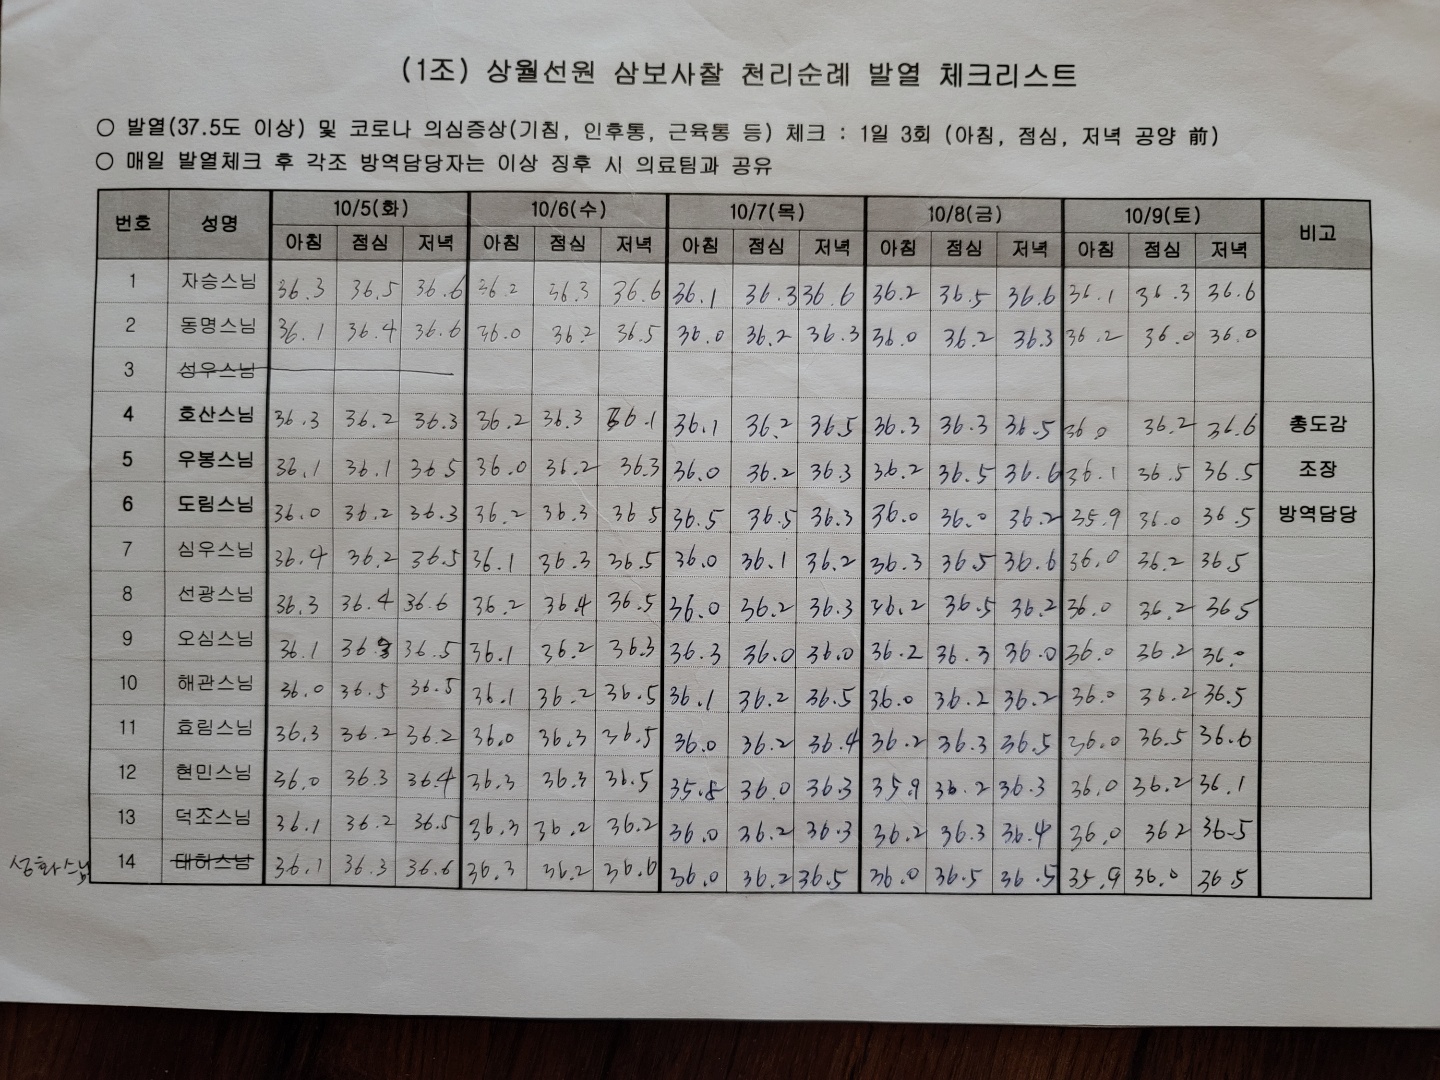 (1조) 상월선원 삼보사찰 천리순례 발열 체크리스트
○ 발열(37.5도 이상) 및 코로나 의심증상(기침, 인후통, 근육통 등) 체크 : 1일 3회 (아침, 점심, 저녁 공양 前)
○ 매일 발열체크 후 각조 방역담당자는 이상 징후 시 의료팀과 공유
번호 성명 10/5(화) 10/6(수) 10/7(목) 10/8(금) 10/9(토) 비고
아침 점심 저녁 아침 점심 저녁 아침 점심 저녁 아침 점심 저녁 아침 점심 저녁
1 자승스님 36.3 36.5 36.6 36.2 36.3 36.6 36.1 36.3 36.6 36.2 36.5 36.6 36.1 36.3 36.6
2 동명스님 36.1 36.4 36.6 36.0 36.2 36.5 36.0 36.2 36.3 36.0 36.2 36.3 36.2 36.0 36.0
3 성우스님
4 호산스님 36.3 36.2 36.3 36.2 36.3 36.1 36.1 36.2 36.5 36.3 36.3 36.5 36.0 36.2 36.6 총도감
5 우봉스님 36.1 36.1 36.5 36.0 36.2 36.3 36.0 36.2 36.3 36.2 36.5 36.6 36.1 36.5 36.5 조장
6 도림스님 36.0 36.2 36.3 36.2 36.3 36.5 36.5 36.5 36.3 36.0 36.0 36.2 35.9 36.0 36.5 방역담당
7 심우스님 36.4 36.2 36.5 36.1 36.3 36.5 36.0 36.1 36.2 36.3 36.5 36.6 36.0 36.2 36.5
8 선광스님 36.3 36.4 36.6 36.2 36.4 36.5 36.0 36.2 36.3 36.2 36.5 36.2 36.0 36.2 36.5
9 오심스님 36.1 36.3 36.5 36.1 36.2 36.3 36.3 36.0 36.0 36.2 36.3 36.0 36.0 36.2 36.0
10 해관스님 36.0 36.5 36.5 36.1 36.2 36.5 36.1 36.2 36.5 36.0 36.2 36.2 36.0 36.2 36.5
11 효림스님 36.3 36.2 36.2 36.0 36.3 36.5 36.0 36.2 36.4 36.2 36.3 36.5 36.0 36.5 36.6
12 현민스님 36.0 36.3 36.4 36.3 36.3 36.5 35.8 36.0 36.3 35.9 36.2 36.3 36.0 36.2 36.1
13 덕조스님 36.1 36.2 36.5 36.3 36.2 36.2 36.0 36.2 36.3 36.2 36.3 36.4 36.0 36.2 36.5
성화스님 14 태허스님 36.1 36.3 36.6 36.3 36.2 36.6 36.0 36.2 36.5 36.0 36.5 36.5 35.9 36.0 36.5